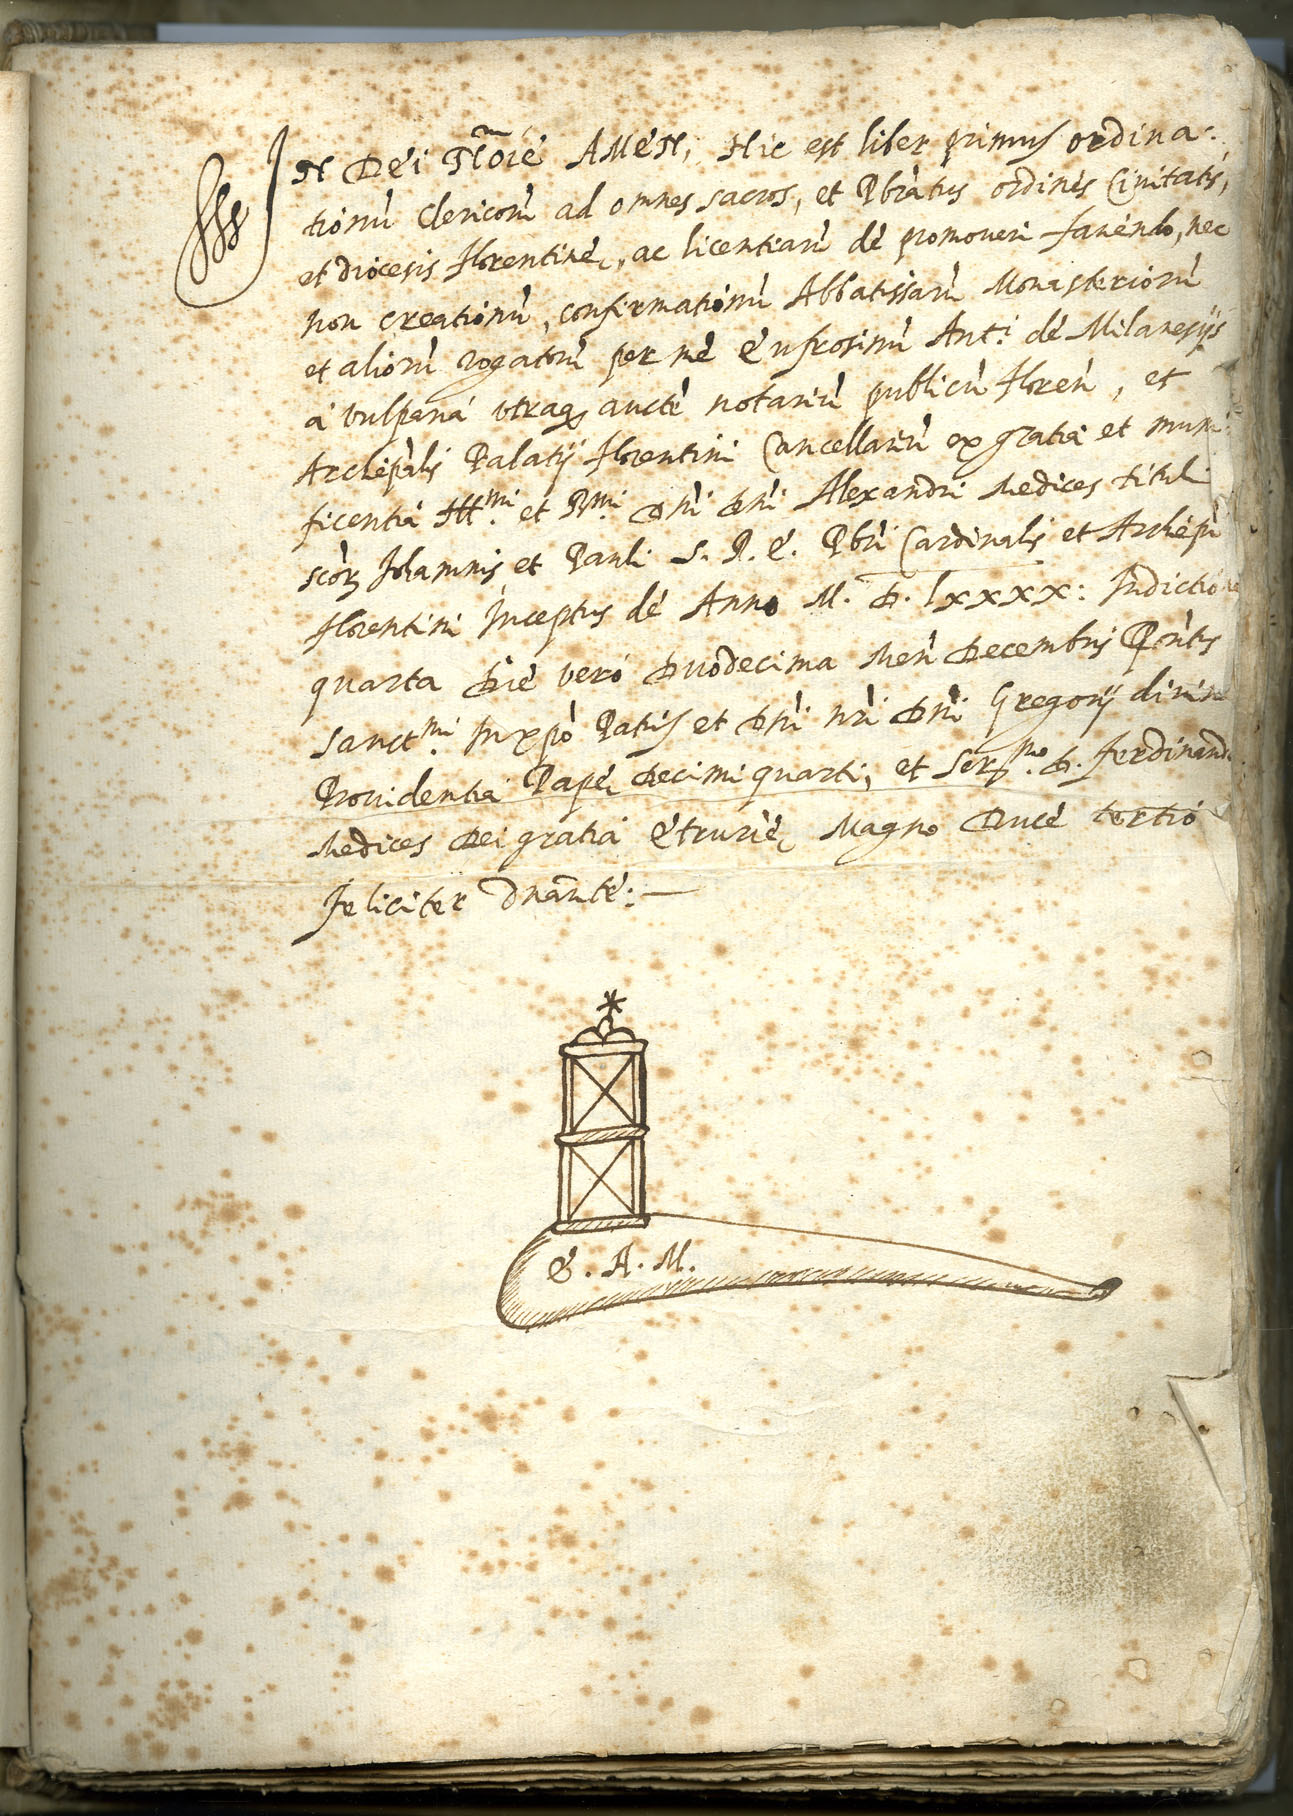 IN Dei No͞ie AMeN, Hic est liber primus ordina-
tionũ Clericorũ ad omnes sacros, et Pbr̃atus ordines Ciuitatis,
et diocesis florentinę, ac licentiarũ de promoueri faciendo, nec
non creationũ, confirmationũ Abbatissarũ Monasteriorũ
et aliorũ rogatorũ per me Eufrosinũ Ant.ⁱ de Milanesijs
a Vulpaná vtraqꝫ auctẽ notariũ publicũ floreñ, et
Archiepãlis Palatij florentini Cancellariũ ex gratia et muni
ficentia Ill.ᵐⁱ et R.ᵐⁱ Dñi Dñi Alexandri Medices tituli
Sctõꝝ Iohannis et Pauli S. R. E. Pbr̃i Cardinalis et Archiepĩ
florentini Inceptus de Anno M. D. lxxxx: Indictione
quarta Die vero Duodecima Meñ Decembris Põntus
Sanct.ᵐⁱ In xp̃o Patris et Dñi nr̃i Dñi Gregorij diuina
Prouidentia Papę Decimi quarti, et Ser.ᵐᵒ D. Ferdinando
Medices Dei gratia Etrurię Magno Duce tertio
feliciter Dnante:—
E. A. M.